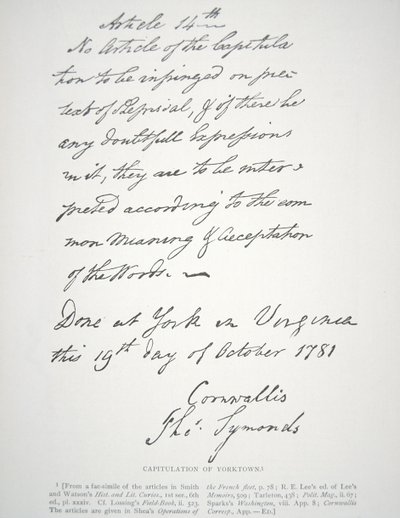 Article 14th
No Article of the Capitula
tion to be infringed on pre-
text of Reprisal, & if there be
any doutfull Expressions
in it, they are to be inter-
preted according to the com
mon Meaning & Acceptation
of the Words.
Done at York in Virginia
this 19th day of October 1781
Cornwallis
Tho: Symonds
CAPITULATION OF YORKTOWN¹
¹ [From a fac-simile of the articles in Smith
and Watson's Hist. and Lit. Curios., 1st ser., 6th
ed., pl. xxxiv. Cf. Lossing's Field-Book, ii. 523.
The articles are given in Shea's Operations of
the French fleet, p. 78; R. E. Lee's ed. of Lee's
Memoirs, 509; Tarleton, 438; Polit. Mag., ii. 67;
Sparks's Washington, viii. App. 8; Cornwallis
Corresp., App. — ED.]